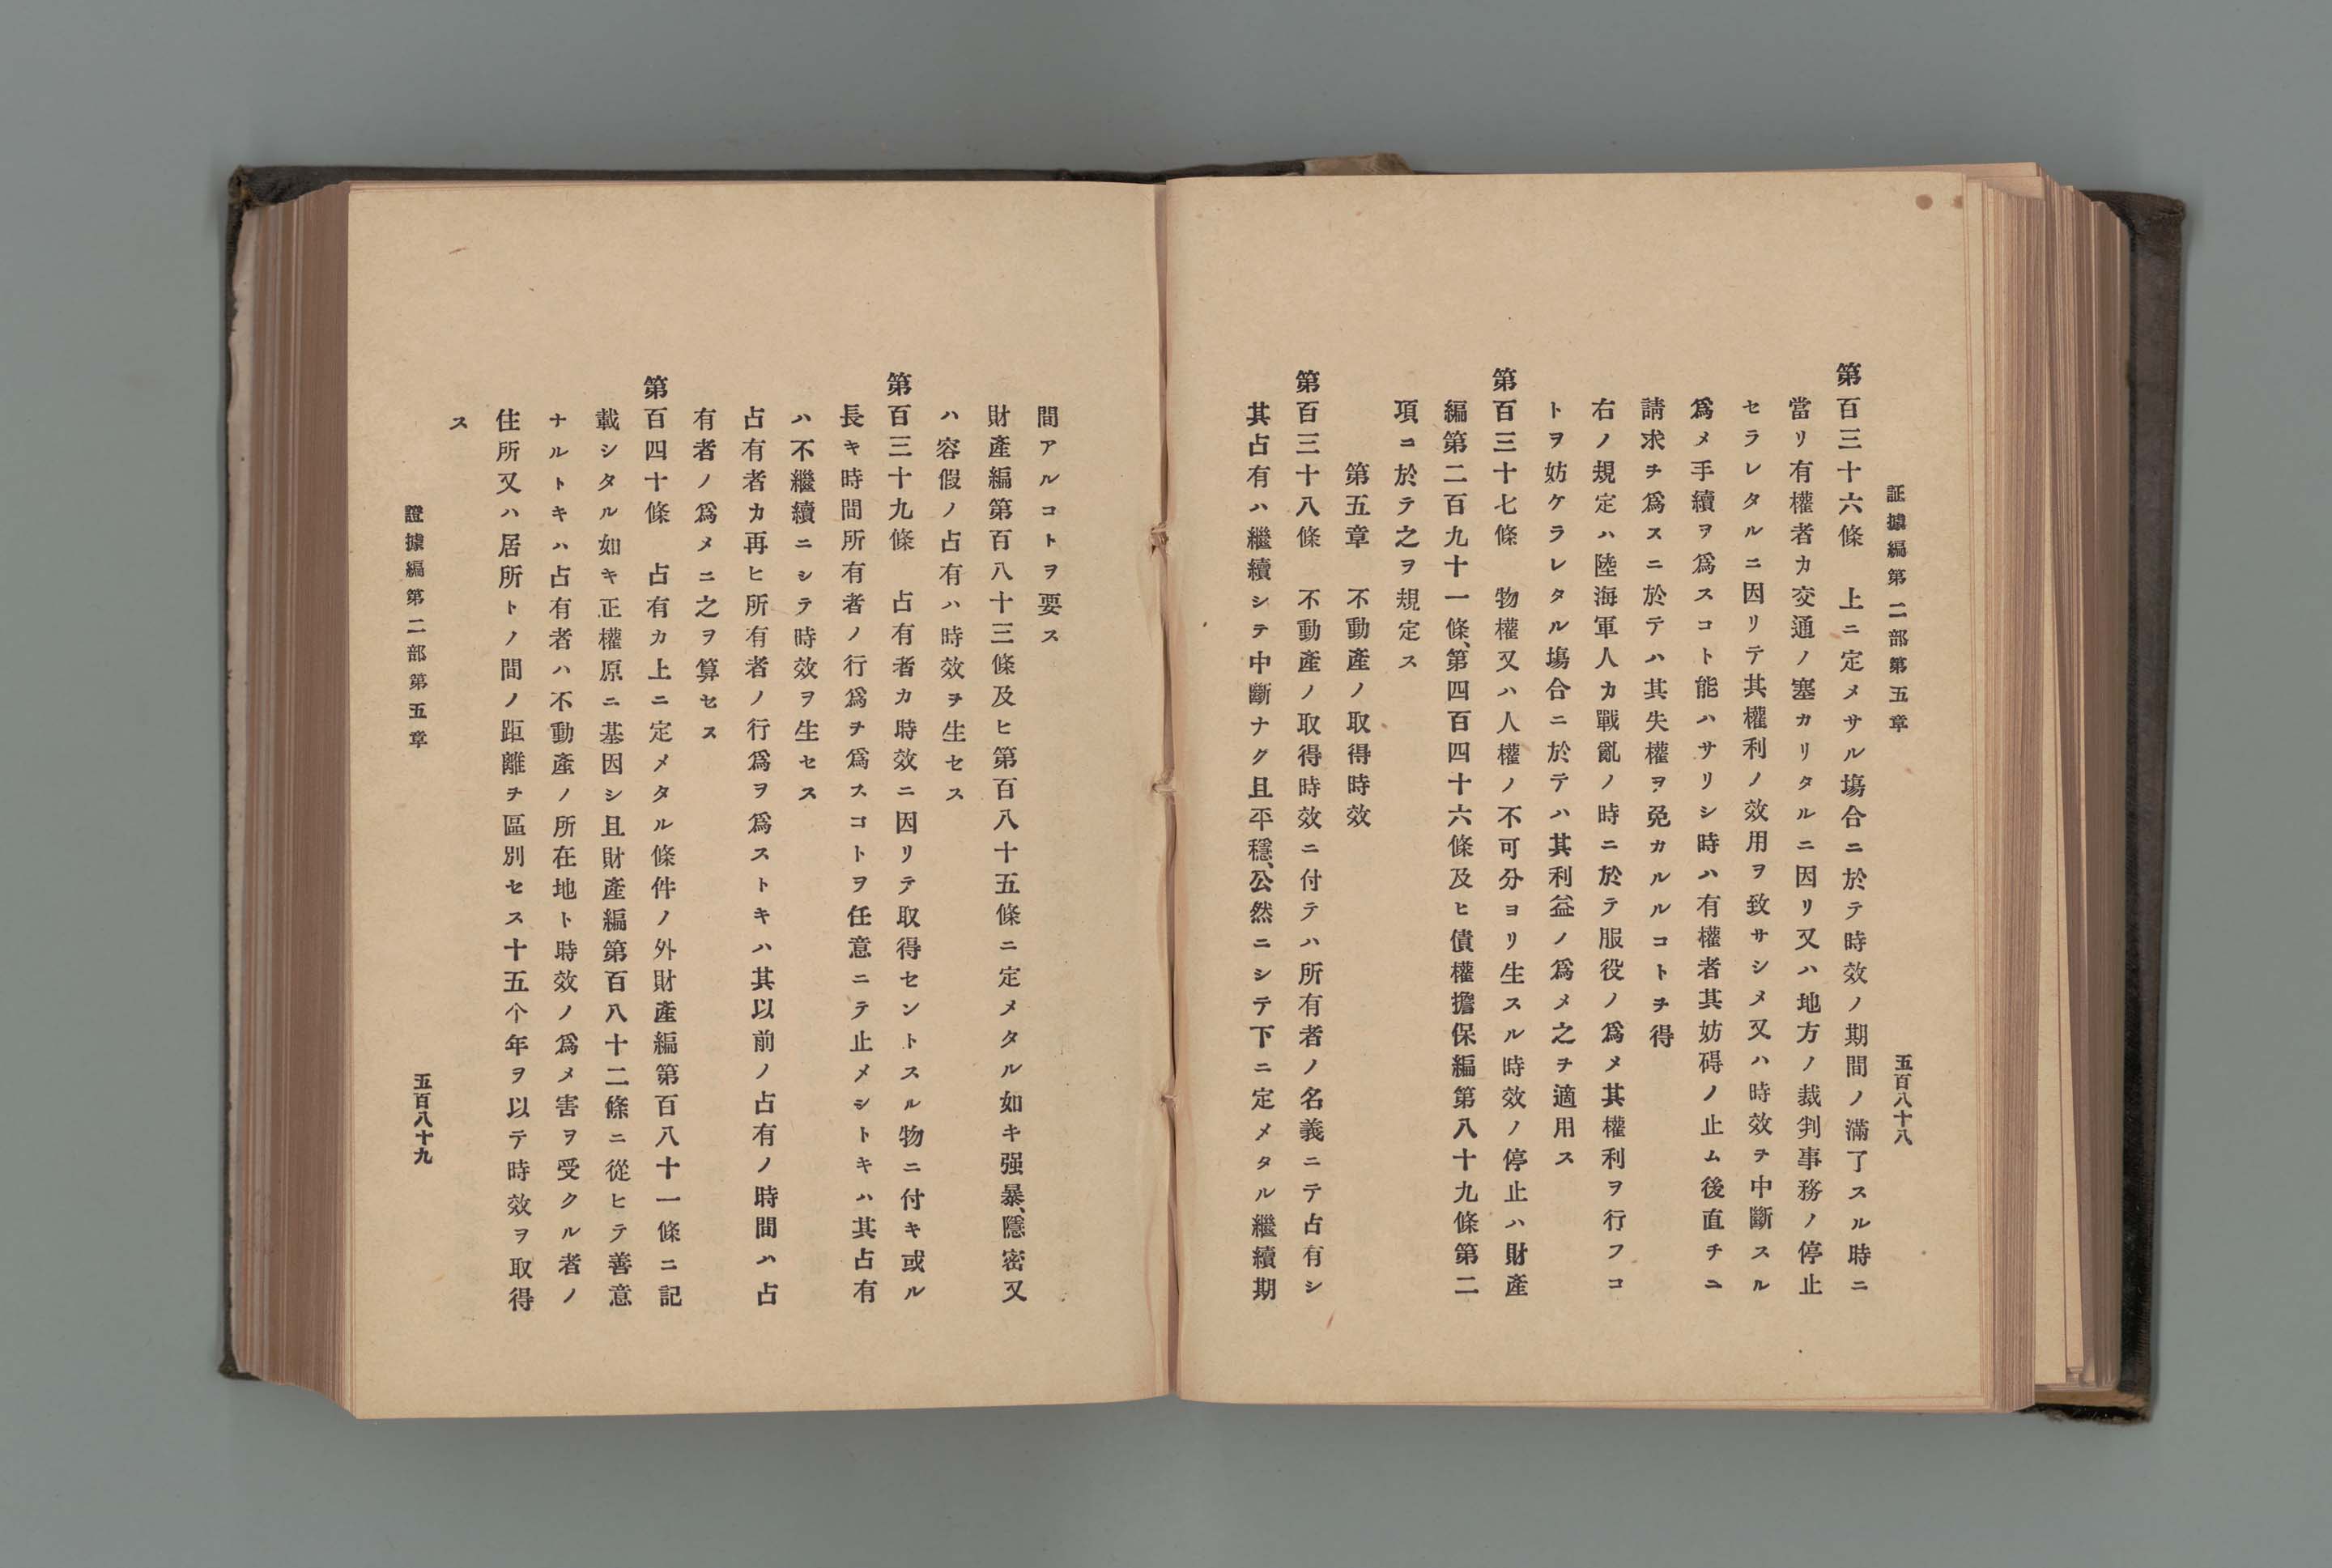 証據編第二部第五章
五百八十八
第百三十六條　上ニ定メサル塲合ニ於テ時效ノ期間ノ滿了スル時ニ
當リ有權者カ交通ノ塞カリタルニ因リ又ハ地方ノ裁判事務ノ停止
セラレタルニ因リテ其權利ノ效用ヲ致サシメ又ハ時效ヲ中斷スル
爲メ手續ヲ爲スコト能ハサリシ時ハ有權者其妨碍ノ止ム後直チニ
請求ヲ爲スニ於テハ其失權ヲ免カルルコトヲ得
右ノ規定ハ陸海軍人カ戰亂ノ時ニ於テ服役ノ爲メ其權利ヲ行フコ
トヲ妨ケラレタル塲合ニ於テハ其利益ノ爲メ之ヲ適用ス
第百三十七條　物權又ハ人權ノ不可分ヨリ生スル時效ノ停止ハ財產
編第二百九十一條、第四百四十六條及ヒ債權擔保編第八十九條第二
項ニ於テ之ヲ規定ス
第五章　不動產ノ取得時效
第百三十八條　不動產ノ取得時效ニ付テハ所有者ノ名義ニテ占有シ
其占有ハ繼續シテ中斷ナク且平穩、公然ニシテ下ニ定メタル繼續期
間アルコトヲ要ス
財產編第百八十三條及ヒ第百八十五條ニ定メタル如キ强暴、隱密又
ハ容假ノ占有ハ時效ヲ生セス
第百三十九條　占有者カ時效ニ因リテ取得セントスル物ニ付キ或ル
長キ時間所有者ノ行爲ヲ爲スコトヲ任意ニテ止メシトキハ其占有
ハ不繼續ニシテ時效ヲ生セス
占有者カ再ヒ所有者ノ行爲ヲ爲ストキハ其以前ノ占有ノ時間ハ占
有者ノ爲メニ之ヲ算セス
第百四十條　占有カ上ニ定メタル條件ノ外財產編第百八十一條ニ記
載シタル如キ正權原ニ基因シ且財產編第百八十二條ニ從ヒテ善意
ナルトキハ占有者ハ不動產ノ所在地ト時效ノ爲メ害ヲ受クル者ノ
住所又ハ居所トノ間ノ距離ヲ區別セス十五个年ヲ以テ時效ヲ取得
ス
證據編第二部第五章
五百八十九